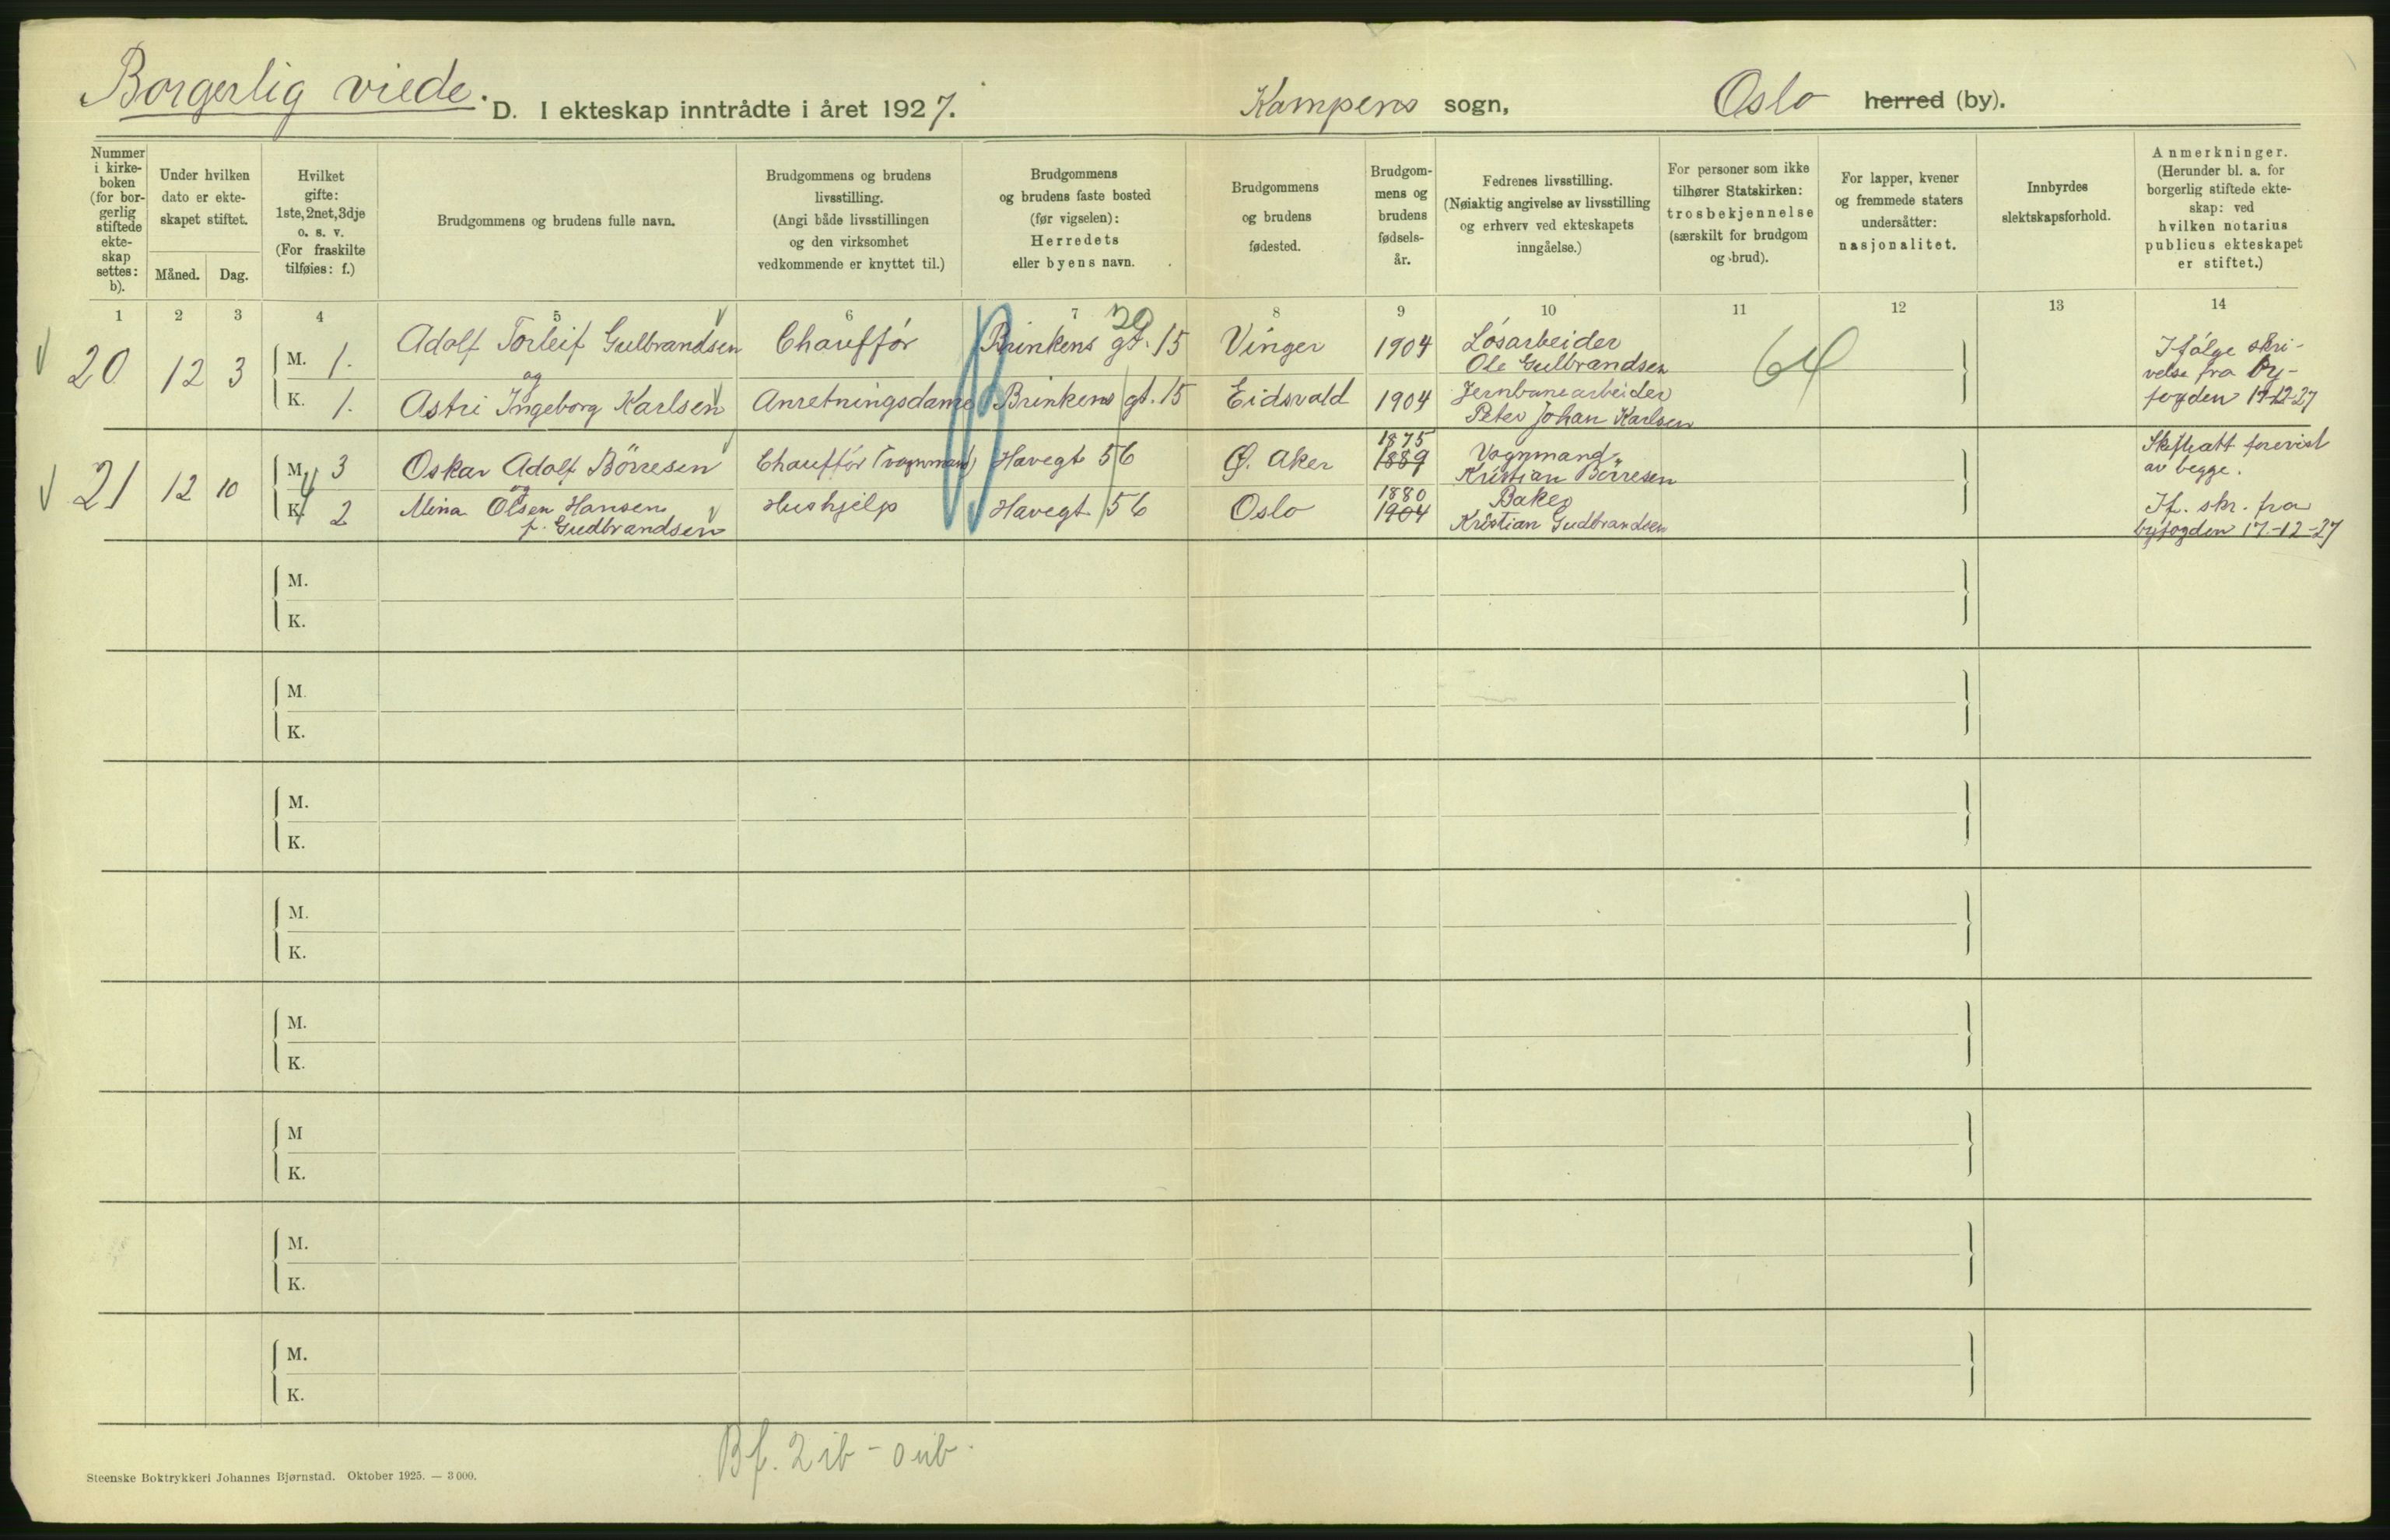 Borgerlig viede.
D. I ekteskap inntrådte i året 1927.
Kampens sogn,
Oslo herred (by).
Nummer i kirke-boken (for bor-gerlig stiftede ekte-skap settes: b).
Under hvilken dato er ekte-skapet stiftet.
Måned. Dag.
Hvilket gifte: 1ste, 2net, 3dje o. s. v. (For fraskilte tilføies: f.)
Brudgommens og brudens fulle navn.
Brudgommens og brudens livsstilling. (Angi både livsstillingen og den virksomhet vedkommende er knyttet til.)
Brudgommens og brudens faste bosted (før vigselen): Herredets eller byens navn.
Brudgommens og brudens fødested.
Brudgom-mens og brudens fødsels-år.
Fedrenes livsstilling. (Nøiaktig angivelse av livsstilling og erhverv ved ekteskapets inngåelse.)
For personer som ikke tilhører Statskirken: trosbekjennelse (særskilt for brudgom og brud).
For lapper, kvener og fremmede staters undersåtter: nasjonalitet.
Innbyrdes slektskapsforhold.
Anmerkninger. (Herunder bl. a. for borgerlig stiftede ekte-skap: ved hvilken notarius publicus ekteskapet er stiftet.)
1 2 3 4 5 6 7 8 9 10 11 12 13 14
20
20 12 3 M. 1. Adolf Torleif Gulbrandsen Chauffór Brinkens gt. 15 Vinger 1904 Lósarbeider
Ole Gulbrandsen
64
og
K. 1. Astri Ingeborg Karlsen Anretningsdame Brinkens gt. 15 Eidsvold 1904 Jernbanearbeider
Peter Johan Karlsen
Ifólge skri-
velse fra by-
fogden 17-12-27
21 12 10 M. 3 Oskar Adolf Börresen Chauffór (vognmand) Havegt 56 Ø. Aker 1875
1889 Vognmand
Kristian Börresen
og
K. 2 Mina Olsen Hansen
f. Gudbrandsen Hushjelp Havegt. 56 Oslo 1880
1904 Baker
Kristian Gudbrandsen
Skifteatt forevist
av begge.
If. skr. fra
byfogden 17-12-27
M.
K.
M.
K.
M.
K.
M.
K.
M.
K.
M
K.
M.
K.
M.
K.
Bf. 2 ib - o ub.
Steenske Boktrykkeri Johannes Bjørnstad. Oktober 1925. — 3 000.